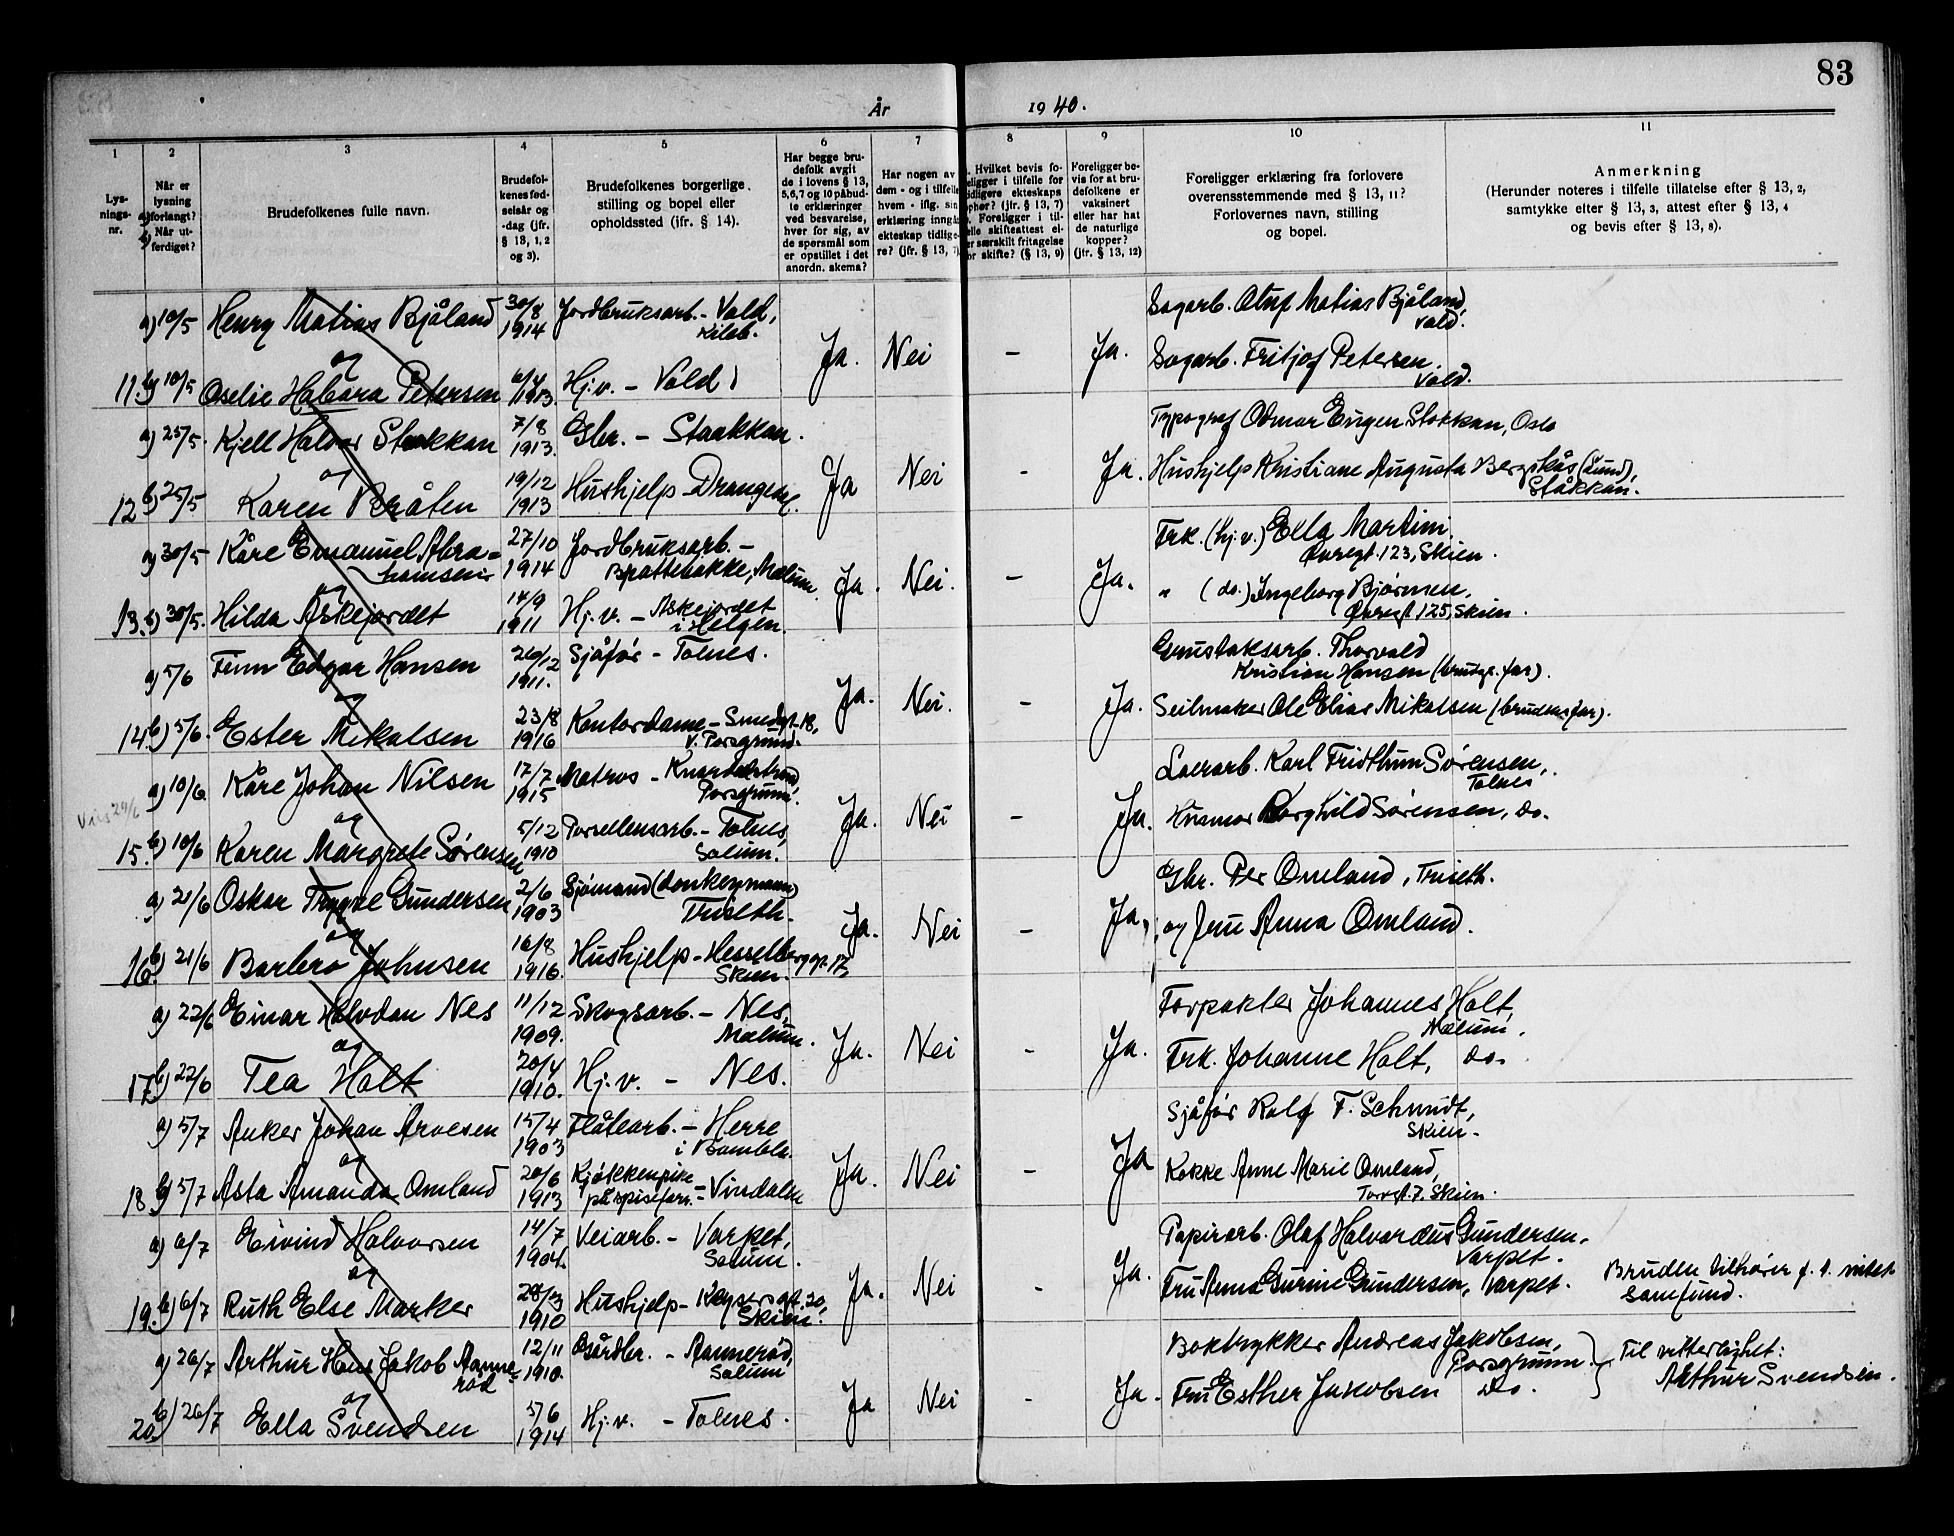 83
År 1940.
1 2 3 4 5 6 7 8 9 10 11
Lysnings-nr.
a) Når er lysning forlangt? b) Når utferdiget?
Brudefolkenes fulle navn.
Brudefolkenes fødselsår og -dag (jfr. § 13, 1, 2 og 3).
Brudefolkenes borgerlige stilling og bopel eller opholdssted (jfr. § 14).
Har begge brudefolk avgit de i lovens § 13, 5, 6, 7 og 10 påbudte erklæringer ved besvarelse, hver for sig, av de spørsmål som er opstillet i det anordn. skema?
Har nogen av dem - og i tilfelle hvem - iflg. sin erklæring inngåt ekteskap tidligere? (jfr. § 13, 7)
Hvilket bevis foreligger i tilfelle for tidligere ekteskaps ophør? (jfr. § 13, 7) Foreligger i tilfelle skifteattest eller særskilt fritagelse for skifte? (§ 13, 9)
Foreligger bevis for at brudefolkene er vaksinert eller har hat de naturlige kopper? (jfr. § 13, 12)
Foreligger erklæring fra forlovere overensstemmende med § 13, 11? Forlovernes navn, stilling og bopel.
Anmerkning (Herunder noteres i tilfelle tillatelse efter § 13, 2, samtykke efter § 13, 3, attest efter § 13, 4 og bevis efter § 13, 8).
a) 10/5 Henry Matias Bjåland 30/8 1914 Jordbruksarb. - Vold, Kileb. Sagarb. Matias Bjåland, Vold.
og Ja. Nei - Ja.
11. b) 10/5 Oselie Habara Petersen 6/4 1913 Hj.v. - Vold Sagarb. Fritjof Petersen Vold.
a) 25/5. Kjell Halvor Stokkan 7/8 1913. Gbr. - Staakkan. Typograf Odmar Eugen Stokkan, Oslo
og Ja Nei - Ja.
12 b) 25/5. Karen Bråten 19/12 1913 Hushjelp - Drangedal. Hushjelp Kristiane Augusta Bergskås (Lund), Ståkkan.
a) 30/5 Kåre Emanuel Abrahamsen 27/10 1914 Jordbruksarb. - Brattebakke, Mælum. Frk. (hj.v.) Ella Martini, 123, Skien.
og Ja. Nei. - Ja.
13. b) 30/5. Hilda Askejordet 14/9 1911 Hj.v. - Askejordet i Helgen. " (do.) Ingeborg Bjørmen, 125, Skien.
a) 5/6 Finn Edgar Hansen 26/12 1911. Sjåfør - Tolnes. Grustaksarb. Thorvald Kristian Hansen (brudg. far).
og Ja. Nei. - Ja.
14 b) 5/6. Ester Mikalsen 23/8 1916 Kontordame - Smedgt. 18, V. Porsgrund. Seilmaker Ole Elias Mikalsen (brudens far).
a) 10/6 Kåre Johan Nilsen 17/7 1915 Matros - Knardalstrand Porsgrund. Karl Fridthun Sørensen, Tolnes
og Ja. Nei - Ja.
15. b) 10/6 Karen Margrete Sørensen 5/12 1910 Porsellensarb. - Tolnes, Solum. Husmor Borghild Sørensen, do.
a) 21/6 Oskar Trygve Gundersen 2/6 1903 Sjømand (donkeymann) Triseth. Gbr. Per Omland, Triseth.
og Ja. Nei - Ja
16. b) 21/6 Barbro Johnsen 16/8 1916. Hushjelp - Hesselberggt. 17, Skien. og fru Anna Omland.
a) 22/6 Einar Halvdan Nes 11/12 1909. Skogsarb. - Nes, Mælum. Forpakter Johannes Holt, Mælum.
og Ja. Nei - Ja.
17. b) 22/6 Tea Holt 20/4 1910. Hj.v. - Nes. Frk. Johanne Holt, do.
a) 5/7 Anker Johan Arvesen 15/4 1903 Fløtearb. - Herre i Bamble. Sjåfør Rolf F. Schmidt, Skien.
og Ja. Nei - Ja
18 b) 5/7 Asta Amanda Omland 20/6 1913 Kjøkkenpike på spiseforr. - Vindalen Kokke Anne Marie Omland, Torvgt. 7. Skien.
a) 6/7 Eivind Halvorsen 14/7 1904. Veiarb. - Varpet, Solum. Papirarb. Olaf Halvardus Gundersen, Varpet.
og Ja. Nei - Ja.
19. b) 6/7 Ruth Else Marker 28/3 1910 Hushjelp - Keysersgt. 20, Skien. Fru Anna Gurine Gundersen, Varpet. Bruden tilhører f. t. intet samfund.
a) 26/7 Arthur Hans Jakob Aannerød 12/11 1910. Gårdbr. - Aannerød, Solum Boktrykker Andreas Jakobsen, Porsgrunn.
og Ja Nei - Ja.
20. b) 26/7 Ella Svendsen 5/6 1914 Hj.v. - Tolnes. Fru Esther Jakobsen do. Til vitterlighet: Arthur Svendsen.